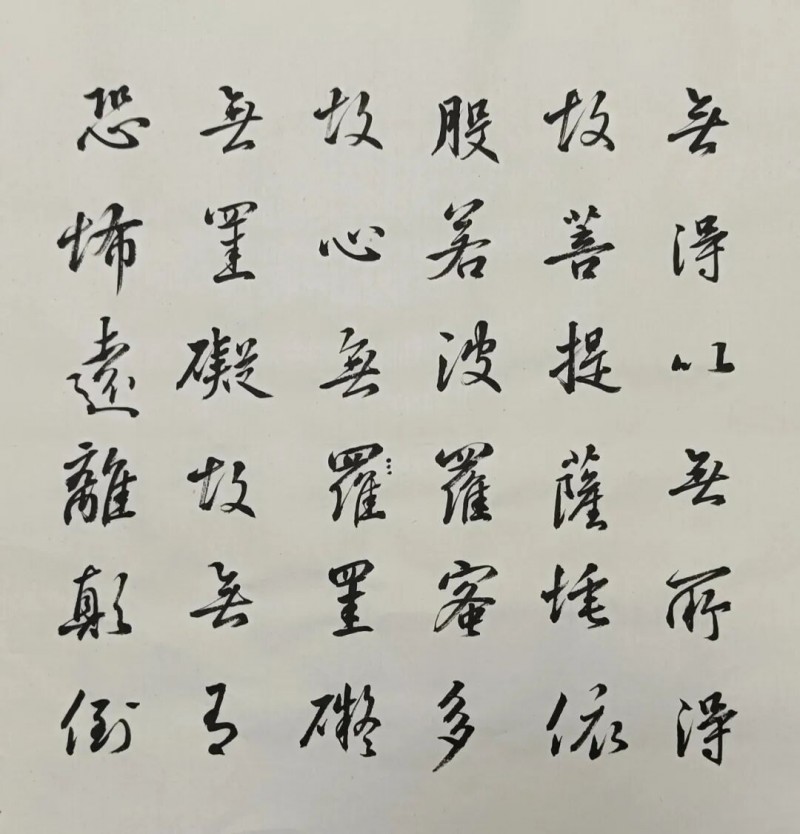 無得以無所得
故菩提薩埵依
般若波羅蜜多
故心無羅罣礙
無罣礙故無有
恐怖遠離顛倒